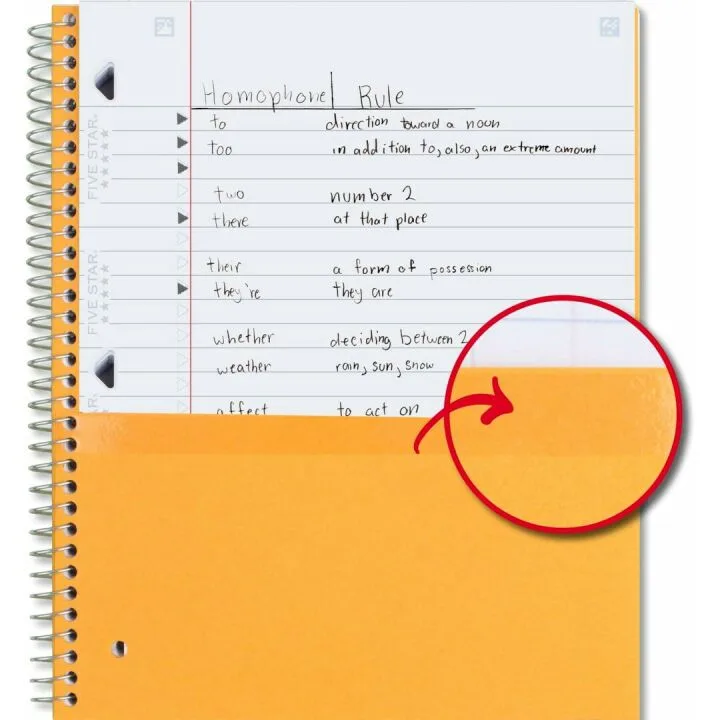 Homophone Rule
to direction toward a noun
too in addition to, also, an extreme amount
two number 2
there at that place
their a form of possession
they're they are
whether deciding between 2
weather rain, sun, snow
affect to act on
FIVE STAR
FIVE STAR